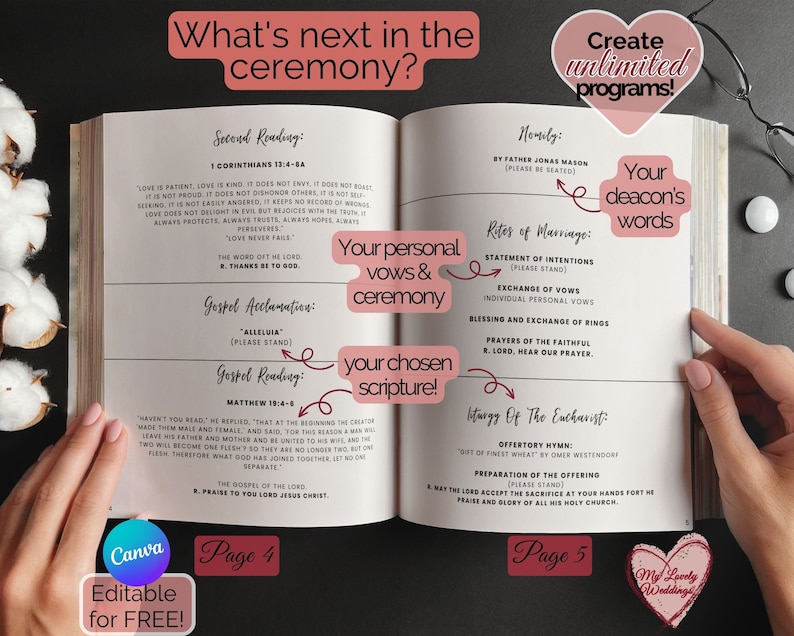 What's next in the
ceremony?
Create
unlimited
programs!
Second Reading:
1 CORINTHIANS 13:4-8A
"LOVE IS PATIENT, LOVE IS KIND. IT DOES NOT ENVY, IT DOES NOT BOAST,
IT IS NOT PROUD. IT DOES NOT DISHONOR OTHERS, IT IS NOT SELF-
SEEKING, IT IS NOT EASILY ANGERED, IT KEEPS NO RECORD OF WRONGS.
LOVE DOES NOT DELIGHT IN EVIL BUT REJOICES WITH THE TRUTH. IT
ALWAYS PROTECTS, ALWAYS TRUSTS, ALWAYS HOPES, ALWAYS
PERSEVERES."
"LOVE NEVER FAILS."
THE WORD OFT HE LORD.
R. THANKS BE TO GOD.
Gospel Acclamation:
"ALLELUIA"
(PLEASE STAND)
Gospel Reading:
MATTHEW 19:4-6
"HAVEN'T YOU READ," HE REPLIED, "THAT AT THE BEGINNING THE CREATOR
'MADE THEM MALE AND FEMALE,' AND SAID, 'FOR THIS REASON A MAN WILL
LEAVE HIS FATHER AND MOTHER AND BE UNITED TO HIS WIFE, AND THE
TWO WILL BECOME ONE FLESH'? SO THEY ARE NO LONGER TWO, BUT ONE
FLESH. THEREFORE WHAT GOD HAS JOINED TOGETHER, LET NO ONE
SEPARATE."
THE GOSPEL OF THE LORD.
R. PRAISE TO YOU LORD JESUS CHRIST.
4
Homily:
BY FATHER JONAS MASON
(PLEASE BE SEATED)
Your
deacon's
words
Rites of Marriage:
STATEMENT OF INTENTIONS
(PLEASE STAND)
Your personal
vows &
ceremony
EXCHANGE OF VOWS
INDIVIDUAL PERSONAL VOWS
BLESSING AND EXCHANGE OF RINGS
PRAYERS OF THE FAITHFUL
R. LORD, HEAR OUR PRAYER.
your chosen
scripture!
Liturgy Of The Eucharist:
OFFERTORY HYMN:
"GIFT OF FINEST WHEAT" BY OMER WESTENDORF
PREPARATION OF THE OFFERING
(PLEASE STAND)
R. MAY THE LORD ACCEPT THE SACRIFICE AT YOUR HANDS FORT HE
PRAISE AND GLORY OF ALL HIS HOLY CHURCH.
5
Canva
Editable
for FREE!
Page 4
Page 5
My Lovely
Weddings